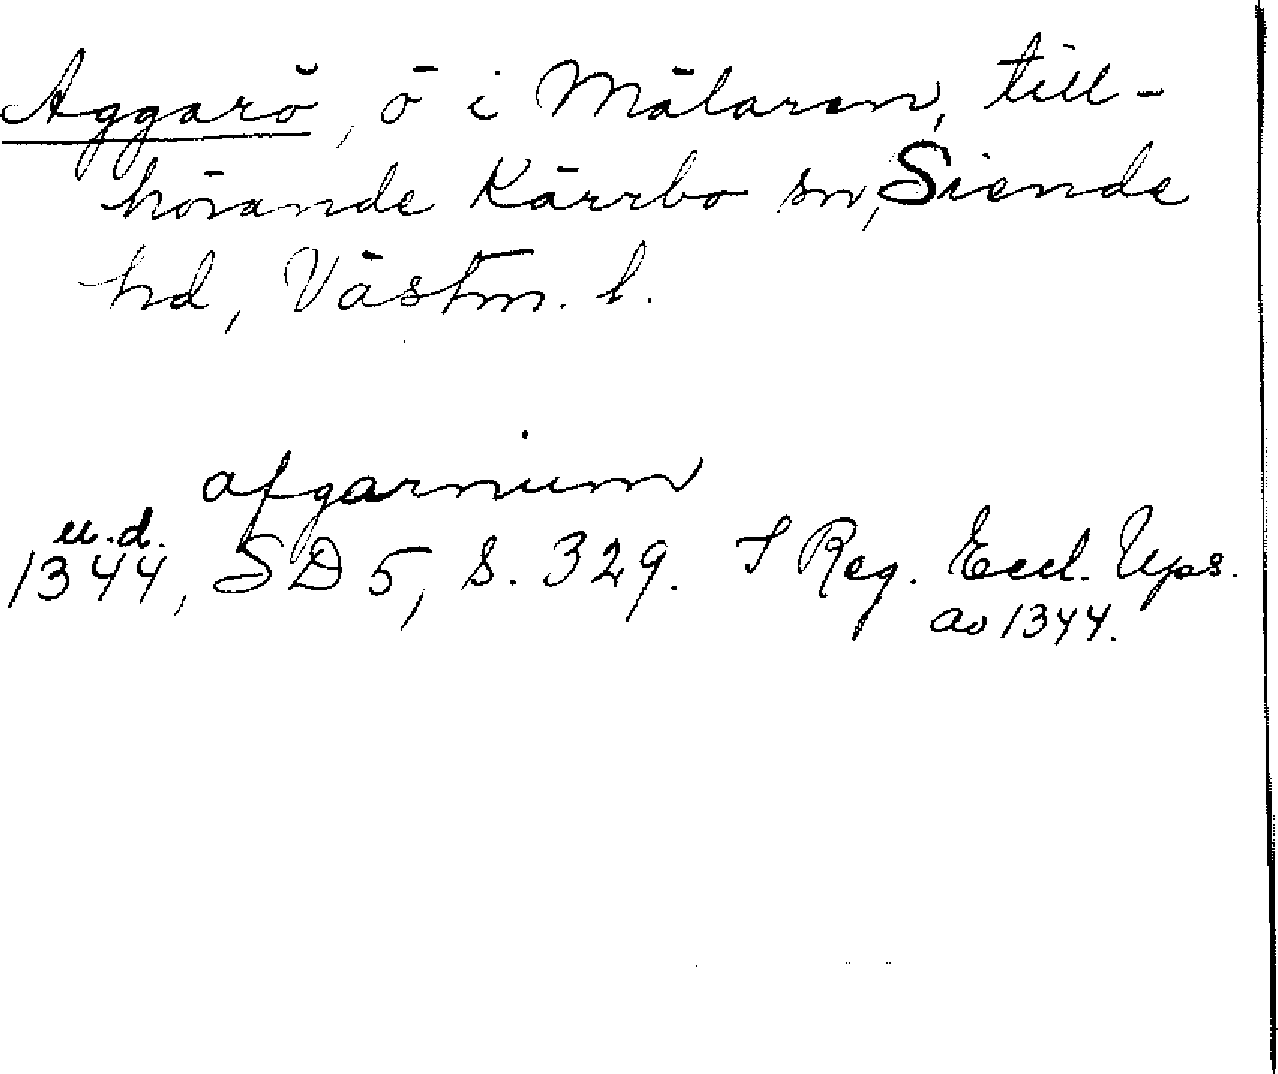 Aggarö, ö i Mälaren, till-
hörande Kärrbo sn, Siende
hd, Västm. l.
afgarnium
u.d.
1344, SD 5, s. 329. I Reg. Eccl. Ups.
av 1344.